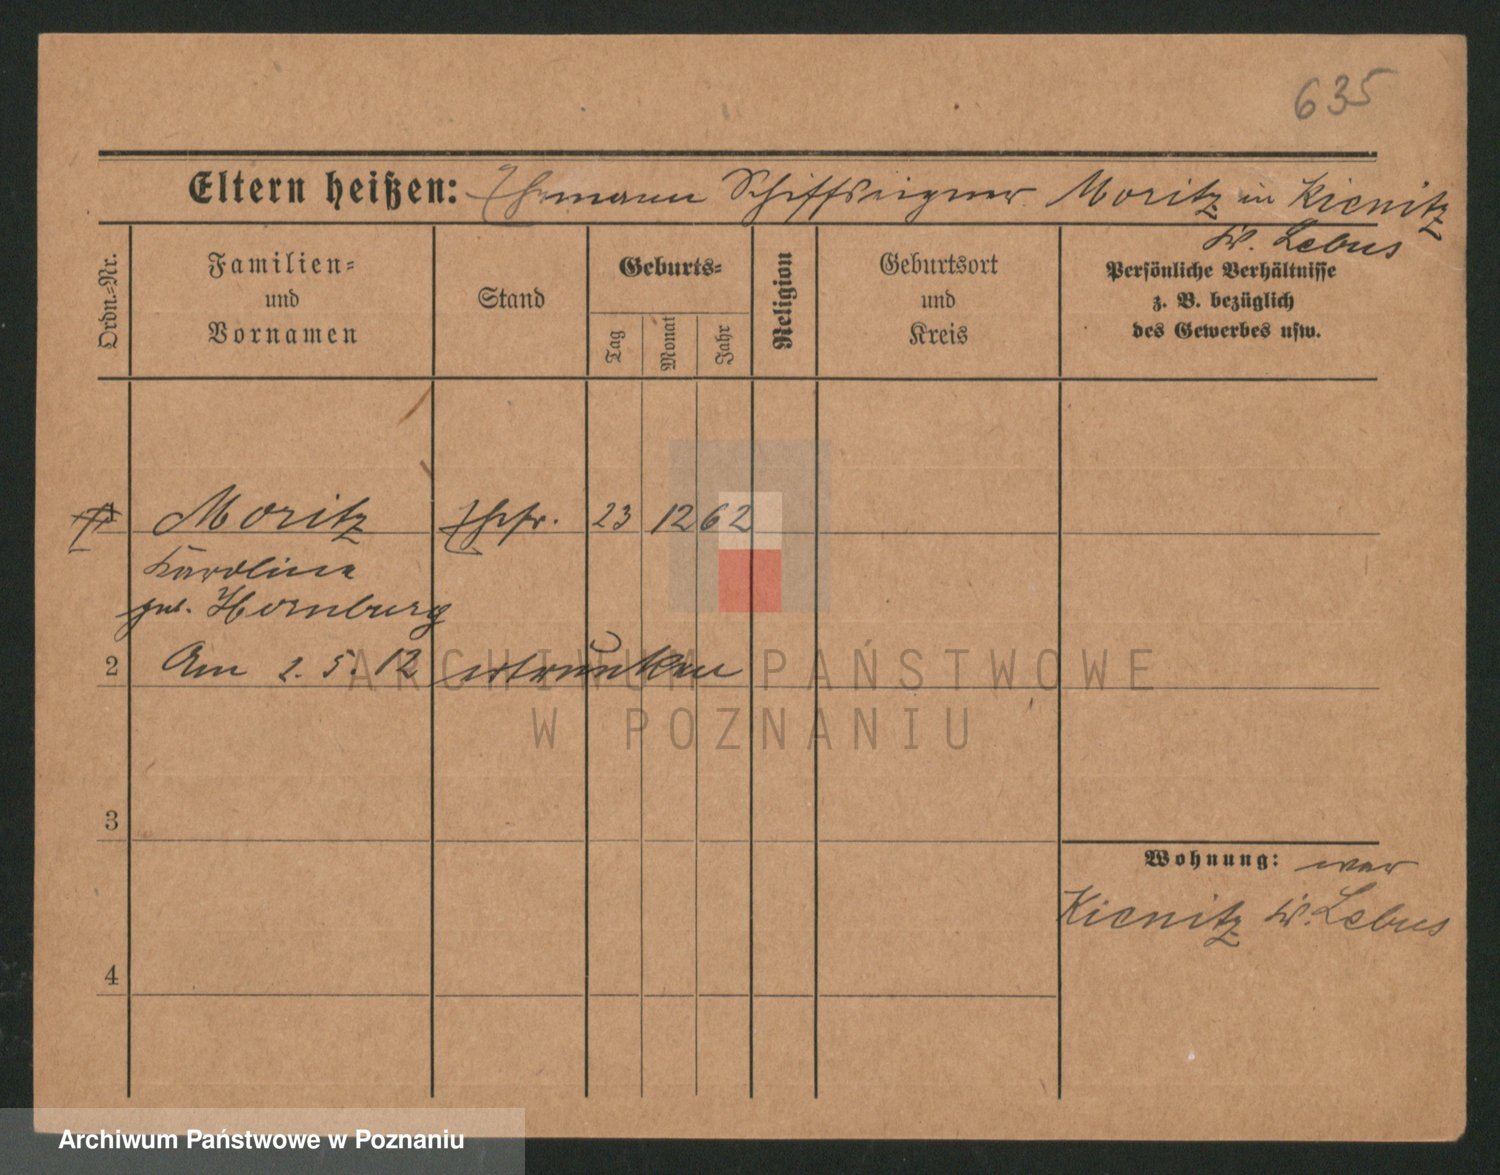 635
Eltern heißen: Ehemann Schiffseigner Moritz in Kienitz
Kr. Lebus
Ordn.-Nr.
Familien-
und
Vornamen
Stand
Geburts-
Tag
Monat
Jahr
Religion
Geburtsort
und
Kreis
Persönliche Verhältnisse
z. B. bezüglich
des Gewerbes usw.
Moritz Ehefr. 23 12 62
Karoline
geb. Hornburg
2 Am 2. 5. 12 ertrunken
ARCHIWUM PAŃSTWOWE
W POZNANIU
3
Wohnung: war
Kienitz Kr. Lebus
4
Archiwum Państwowe w Poznaniu